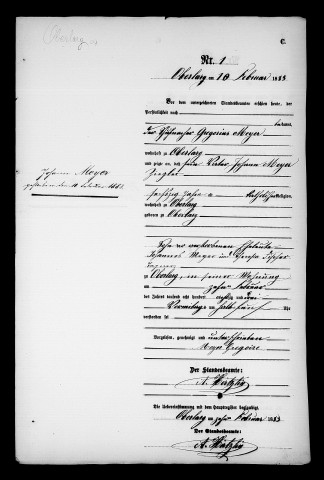 Oberlarg
C.
Nr. 1
Oberlarg am 10 Februar 1883
Vor dem unterzeichneten Standesbeamten erschien heute, der
Persönlichkeit nach
bekannt,
der Gregorius Meyer
wohnhaft zu Oberlarg
und zeigte an, daß sein Vater, Johann Meyer
Johann Meyer
gestorben den
sechszig Jahre alt, katholischer Religion,
wohnhaft zu Oberlarg
geboren zu Oberlarg
Sohn der verstorbenen Eheleute
Johannes Meyer und
zu Oberlarg, in seiner Wohnung
am zehn Februar
des Jahres tausend acht hundert achtzig und drei
Vormittags um fünf Uhr
verstorben sei
Vorgelesen, genehmigt und unterschrieben
Meyer Gregoire
Der Standesbeamte:
Die Uebereinstimmung mit dem Hauptregister beglaubigt.
Oberlarg am zehn Februar 1883
Der Standesbeamte: